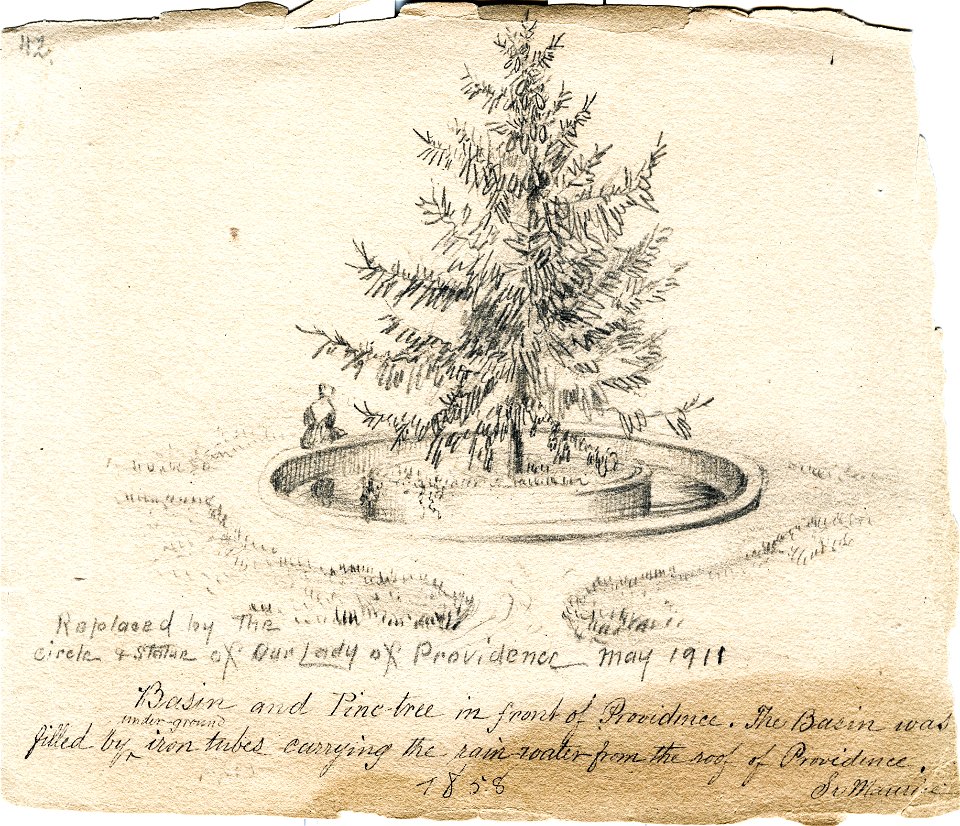 42.
Replaced by The
circle & statue of Our Lady of Providence May 1911
Basin and Pine-tree in front of Providence. The Basin was
under-ground
filled by ^ iron tubes carrying the rain-water from the roof of Providence.
1858
Sr Maurice